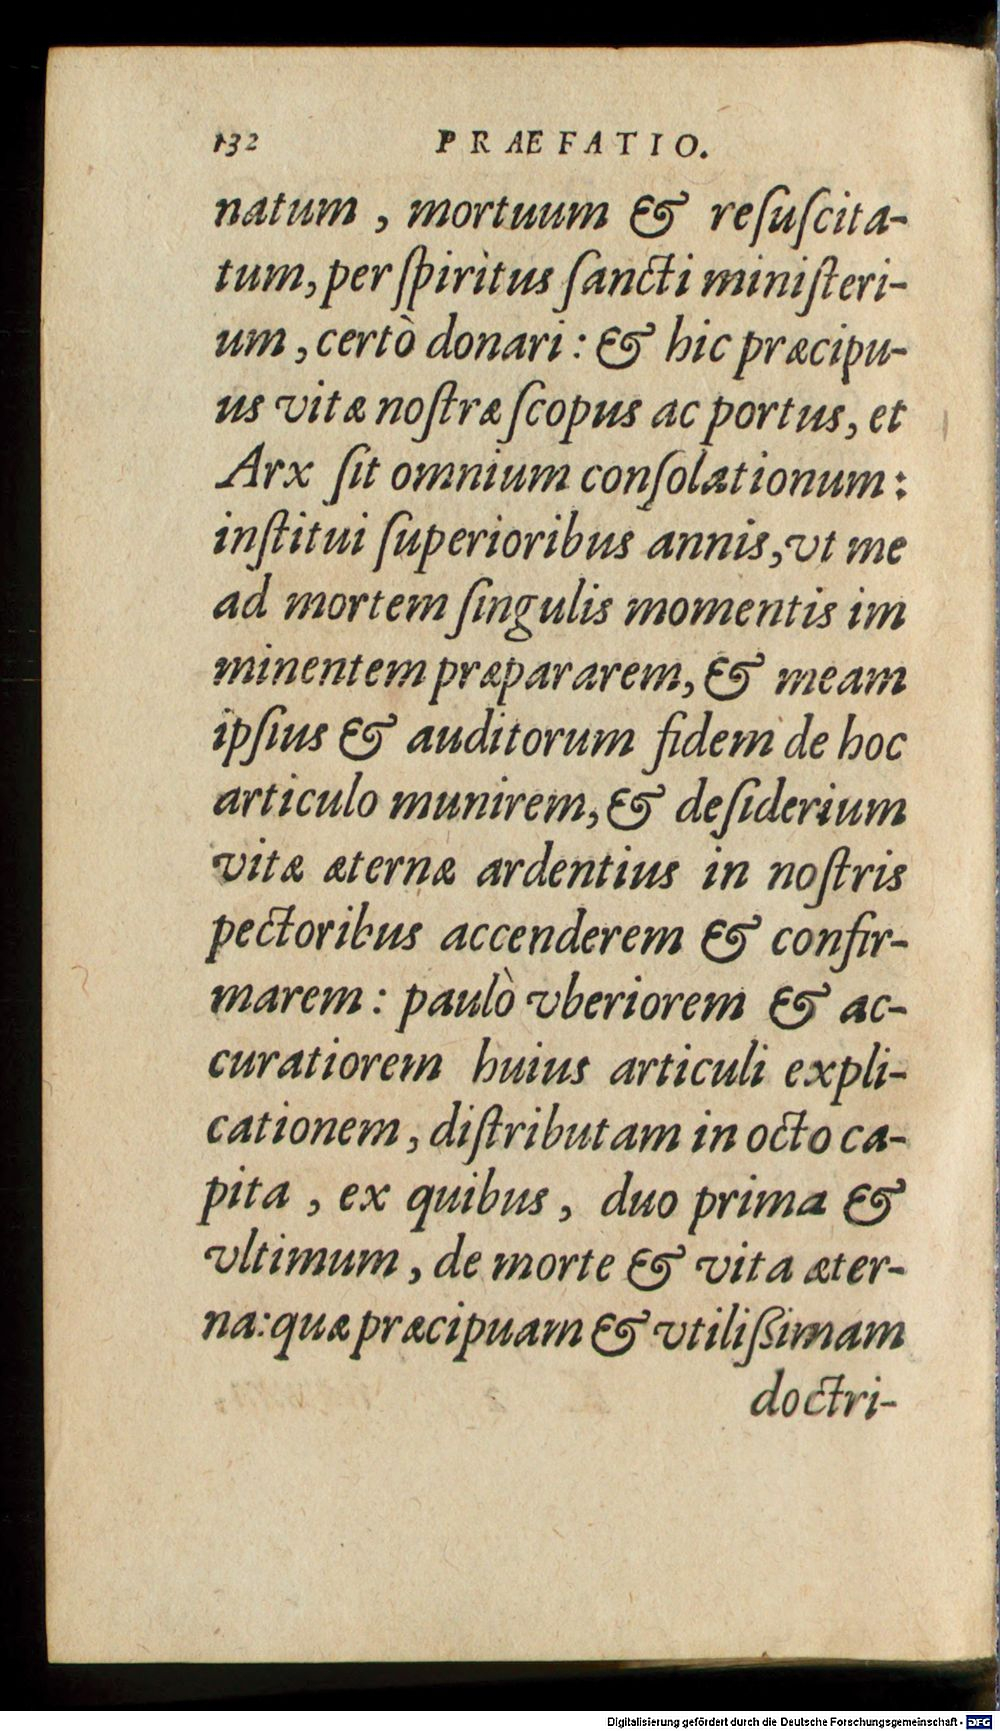 132 PRÆFATIO.
natum, mortuum & reſuſcita-
tum, per ſpiritus ſancti miniſteri-
um, certò donari: & hic præcipu-
us vitæ noſtræ ſcopus ac portus, et
Arx ſit omnium conſolationum:
inſtitui ſuperioribus annis, vt me
ad mortem ſingulis momentis im
minentem præpararem, & meam
ipſius & auditorum fidem de hoc
articulo munirem, & deſiderium
vitæ æternæ ardentius in noſtris
pectoribus accenderem & confir-
marem: paulò vberiorem & ac-
curatiorem huius articuli expli-
cationem, diſtributam in octo ca-
pita, ex quibus, duo prima &
vltimum, de morte & vita æter-
na: quæ præcipuam & vtiliſsimam
doctri-
Digitalisierung gefördert durch die Deutsche Forschungsgemeinschaft - DFG